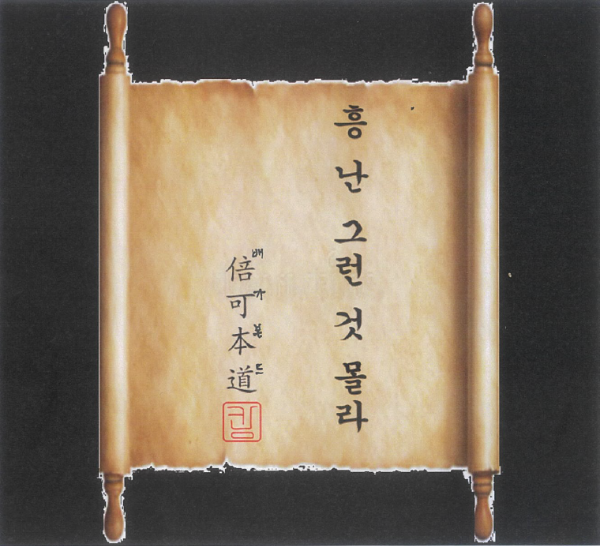 흥 난 그런 것 몰라
倍可本道
배가본드
킴